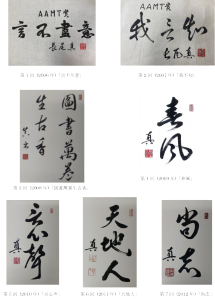 AAMT賞
言不盡意
長尾真
第1回(2006年)「言不尽意」
AAMT賞
我言知
長尾真
第2回(2007年)
圖書萬卷
生古香
真
第3回(2008年)「図書万巻生古香」
春風
真
第4回(2009年)「春風」
真
第5回(2010年)
天地人
真
第6回(2011年)「天地人」
尚志
真
第7回(2012年)「尚志」